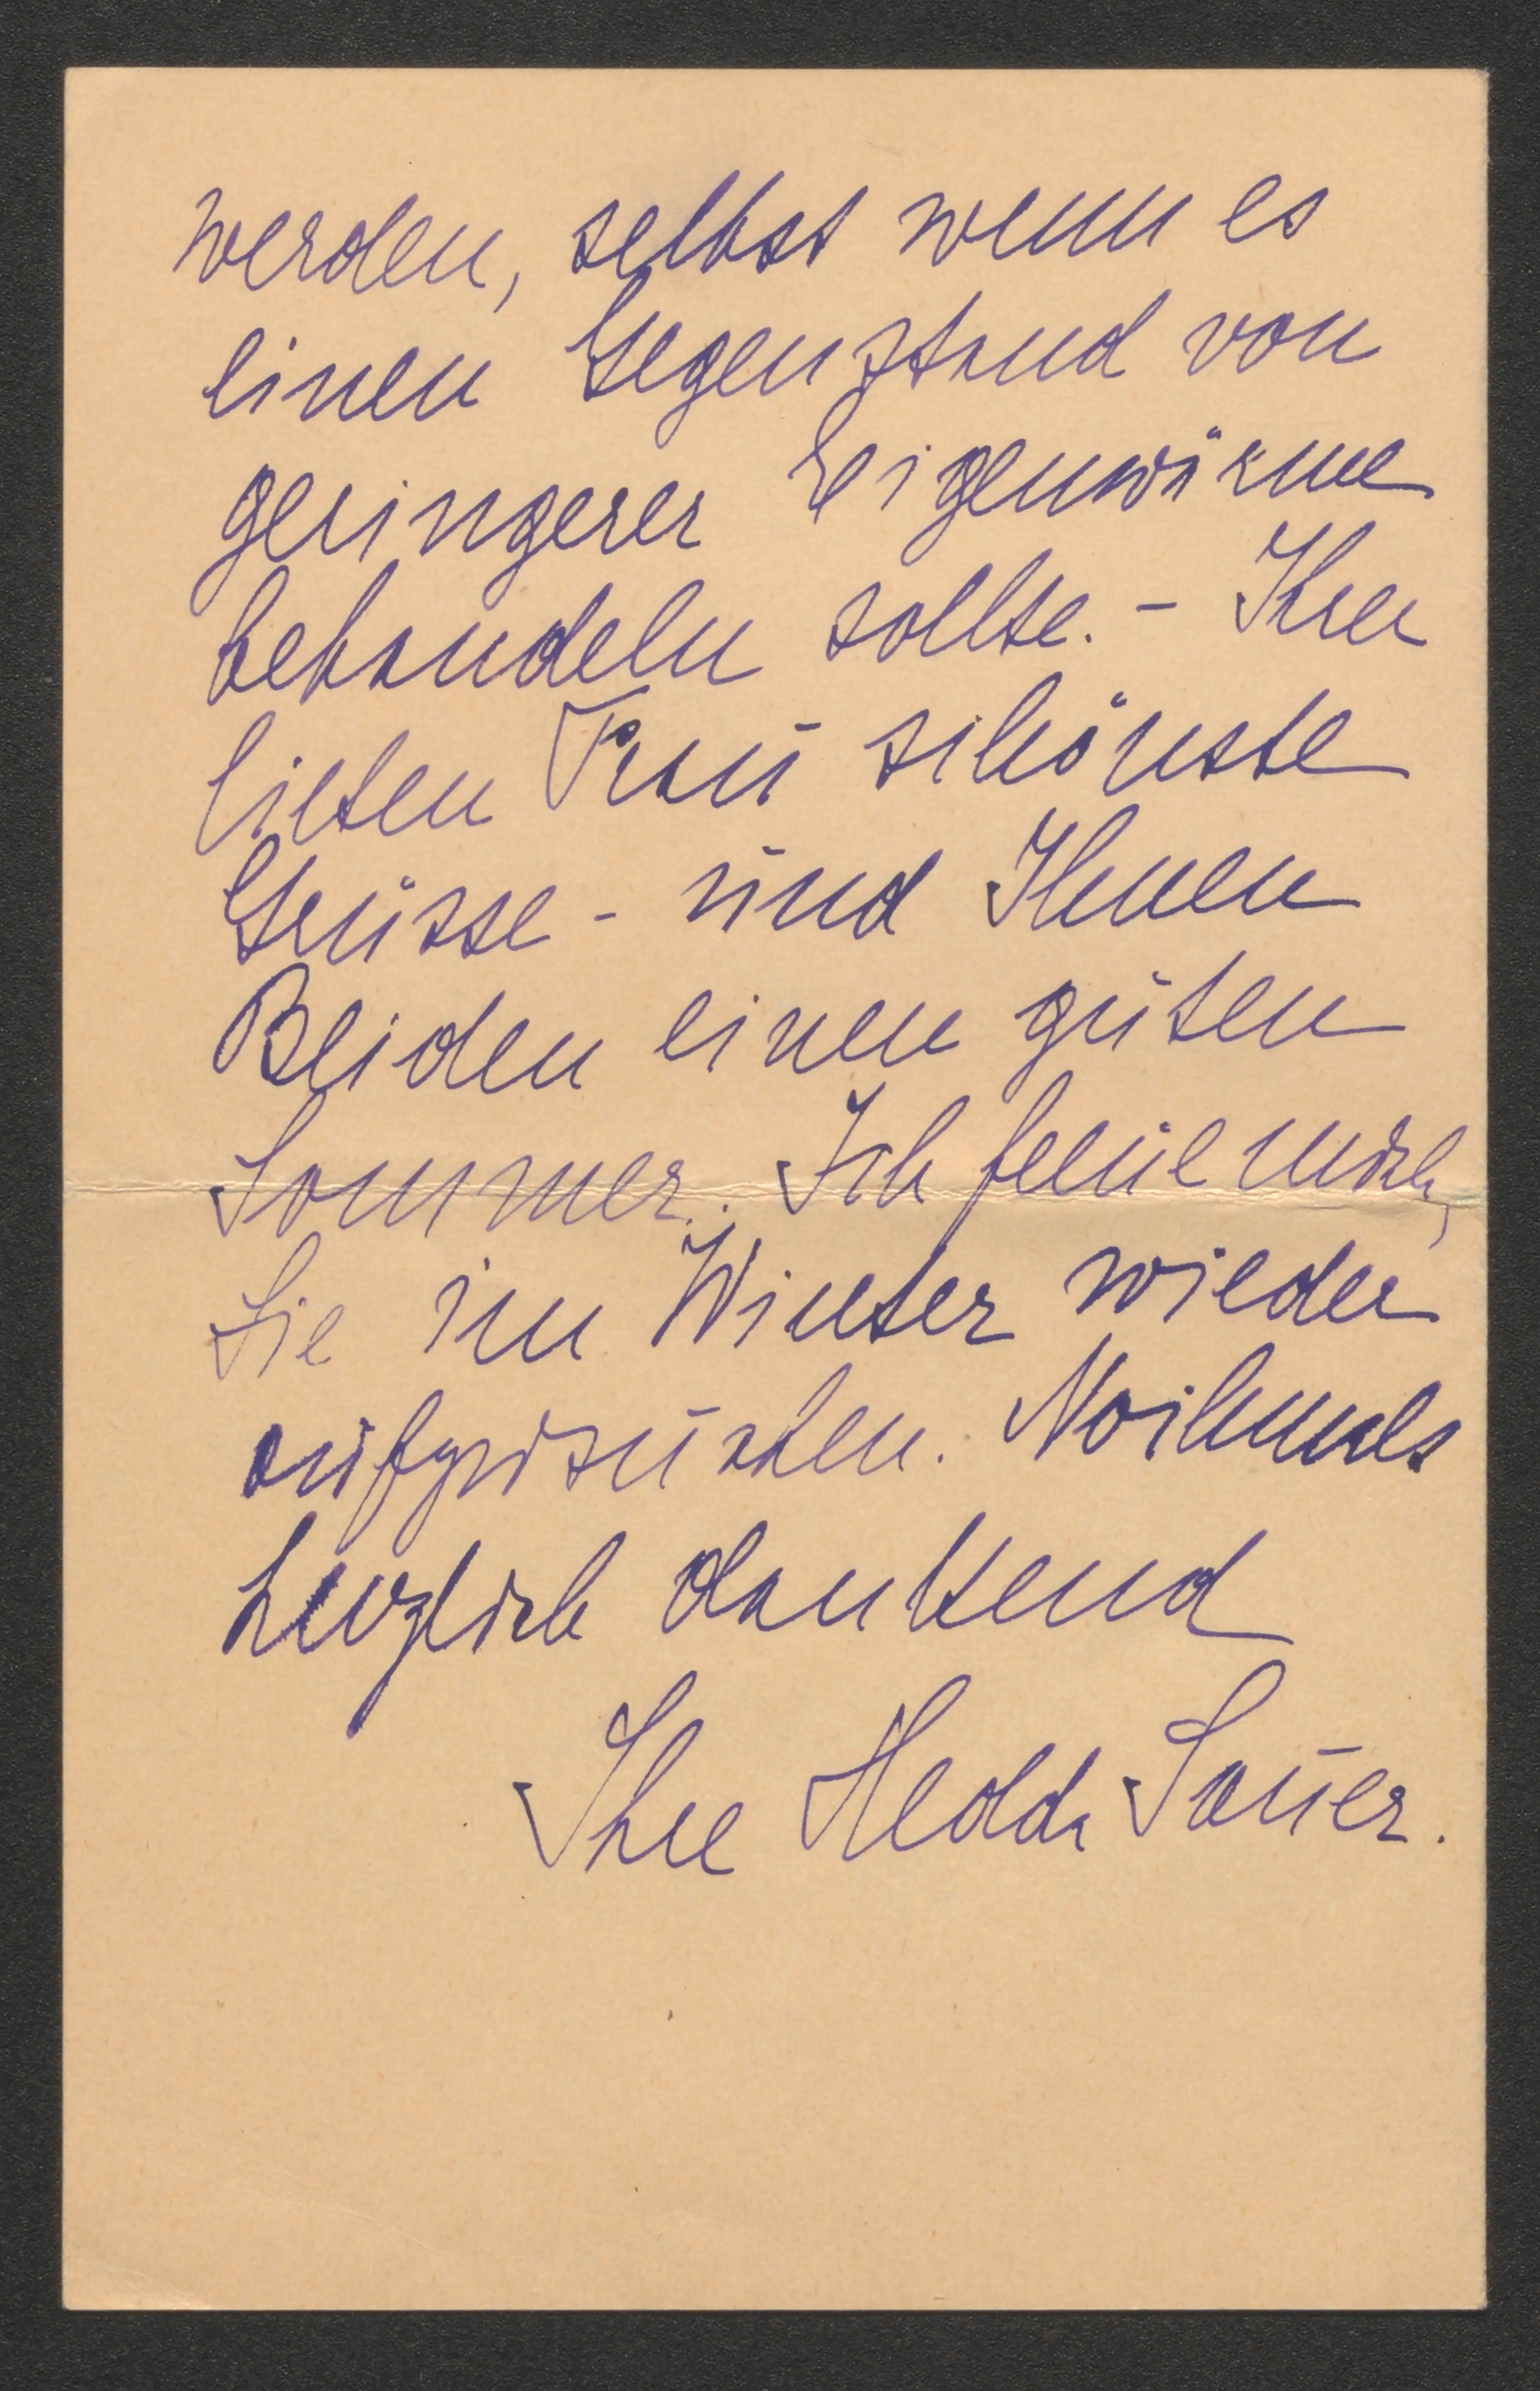 werden, selbst wenn es
einen Gegenstand von
geringerer Eigenwärme
behandeln sollte. - Ihrer
lieben Frau schönste
Grüsse - und Ihnen
Beiden einen guten
Sommer. Ich freue mich,
Sie im Winter wieder
aufzusuchen. Nochmals
herzlich dankend
Ihre Hedda Sauer.